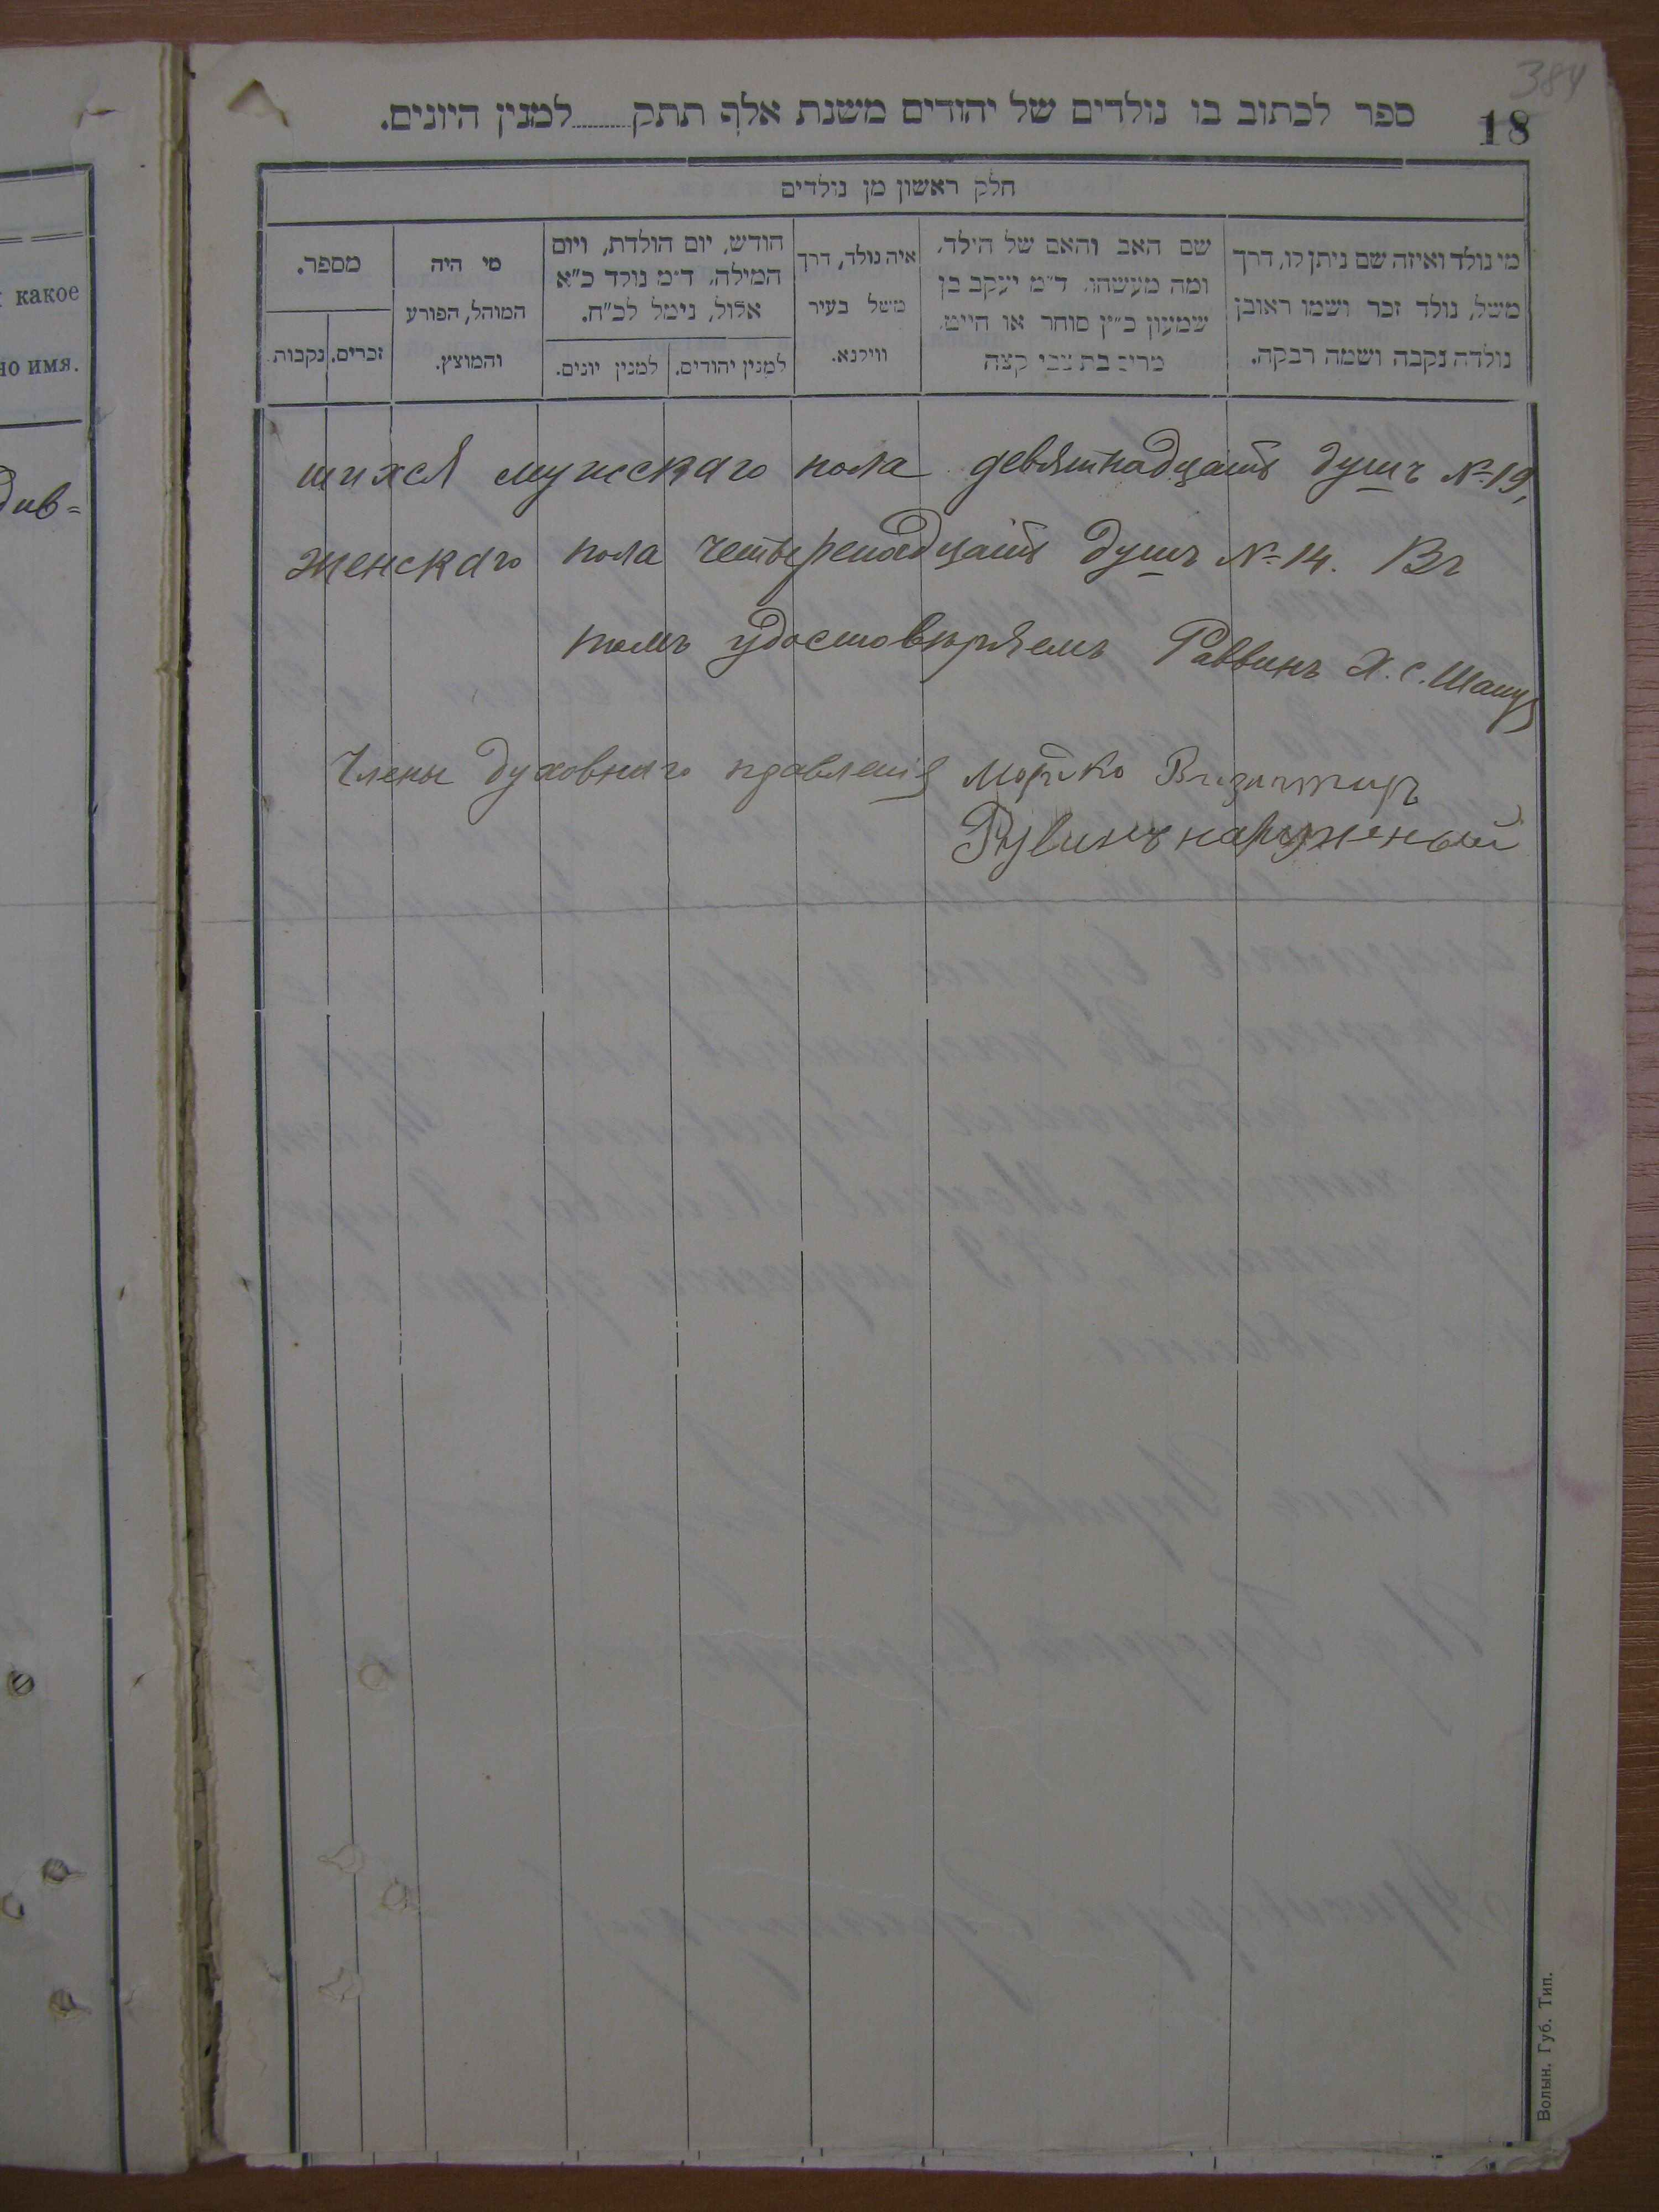 384
18
ספר לכתוב בו נולדים של יהודים משנת אלף תתק........למנין היונים.
חלק ראשון מן נולדים
מי נולד ואיזה שם ניתן לו, דרך
משל, נולד זכר ושמו ראובן
נולדה נקבה ושמה רבקה.
שם האב והאם של הילד,
ומה מעשהו, ד״מ יעקב בן
שמעון כ״ץ סוחר או חייט,
מרים בת צבי קצה
איה נולד, דרך
משל בעיר
ווילנא.
חודש, יום הולדת, ויום
המילה, ד״מ נולד כ״א
אלול, נימל לכ״ח.
למנין יהודים.
למנין יונים.
מי היה
המוהל, הפורע
והמוצץ.
מספר.
זכרים.
נקבות.
какое
но имя.
шихся мужскаго пола девятнадцать душъ №19,
женскаго пола четыренадцать душъ №14. Въ
томъ удостовѣряемъ Раввинъ Х. С. Шапу
Члены духовнаго правленія Мотько
Рувинъ наружный
Волын. Губ. Тип.